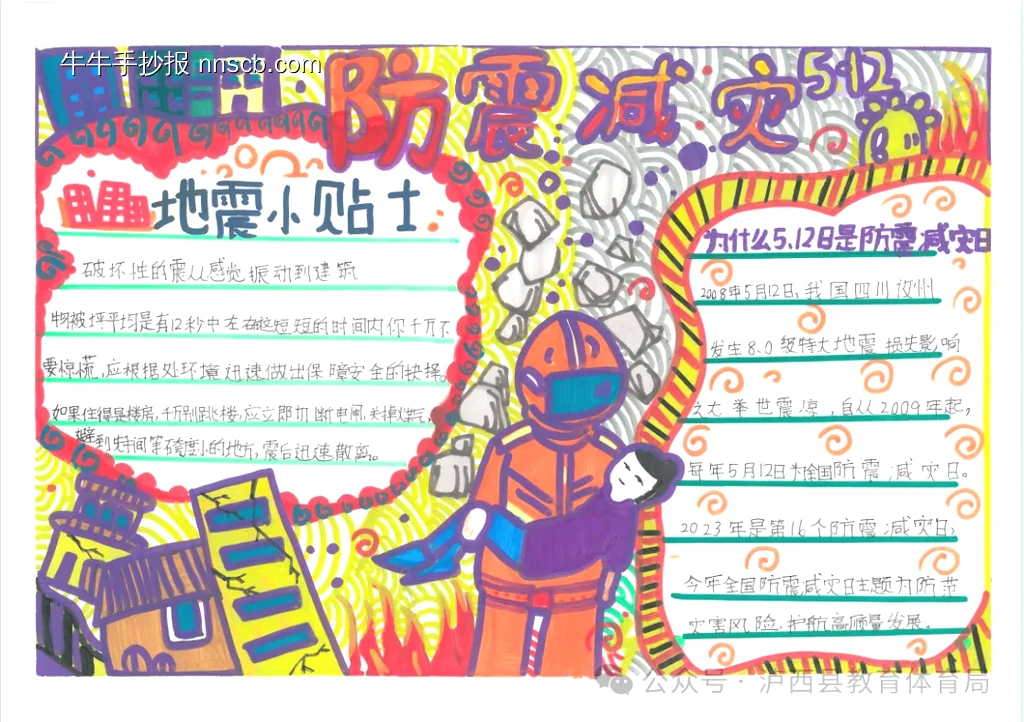 牛牛手抄报 nnscb.com
防震减灾 5·12
地震小贴士
破坏性的震从感觉振动到建筑
物被坏平均是有12秒中左在这短短的时间内你千万不
要惊慌,应根据处环境迅速做出保障安全的抉择。
如果住得是楼房,千万别跳楼,应立即切断电闸,关掉煤气,
避到房间等硬度小的地方,震后迅速散离。
为什么5.12日是防震减灾日
2008年5月12日,我国四川汶州
发生8.0级特大地震 损失影响
之大 举世震惊,自从2009年起,
每年5月12日为全国防震减灾日。
2023年是第16个防震减灾日,
今年全国防震减灾日主题为防范
灾害风险,护航高质量发展。
公众号·泸西县教育体育局